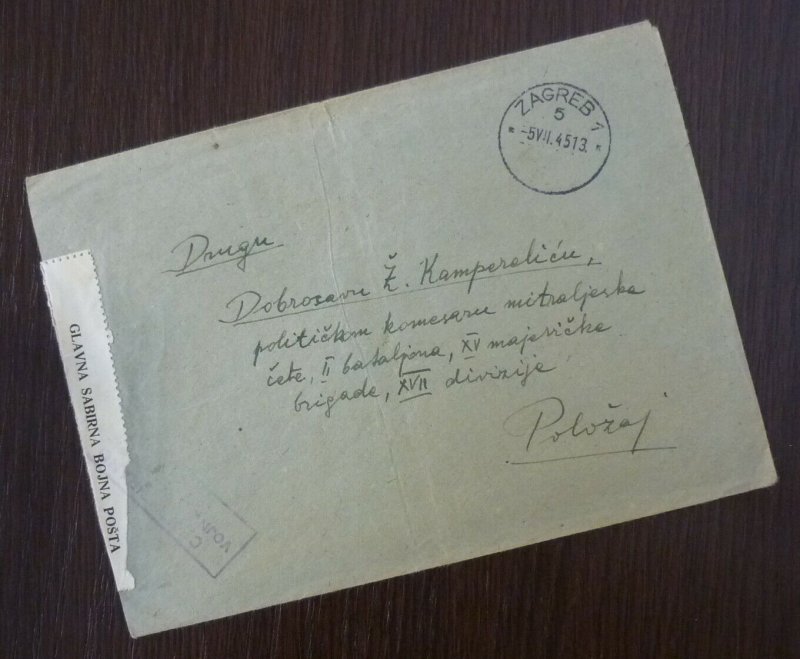 ZAGREB 1
5
* -5VII.45 13. *
Drugu
Dobrosavu Ž. Kampereliću,
političkom komesaru mitraljeske
čete, II bataljona, XV majevičke
brigade, XVII divizije
Položaj
GLAVNA SABIRNA BOJNA POŠTA